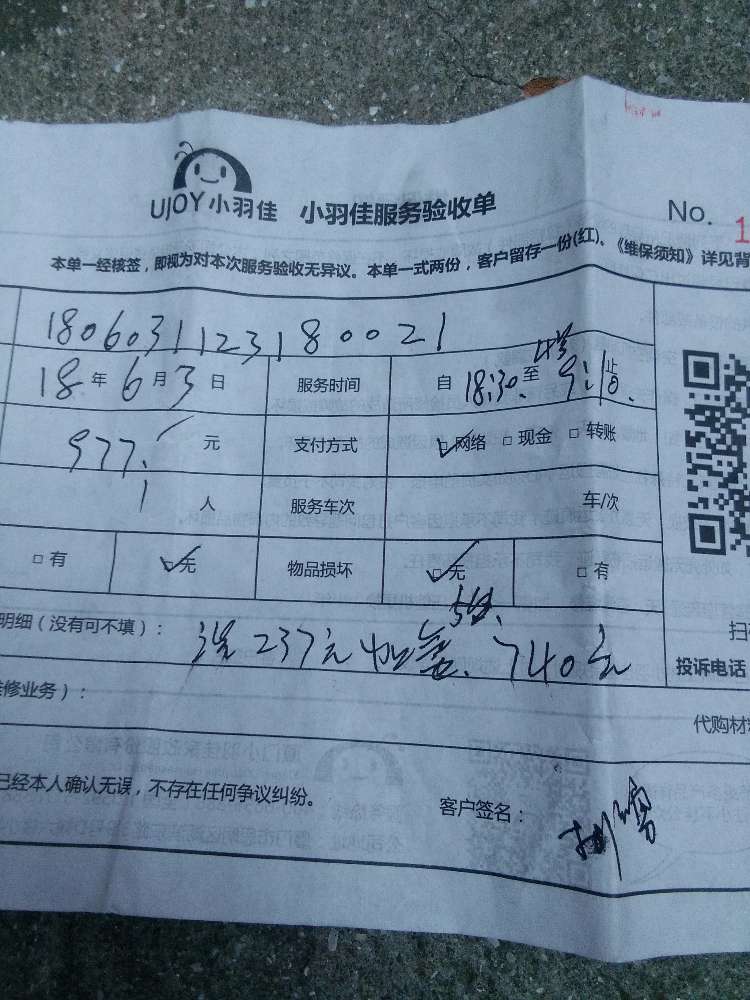 UJOY小羽佳 小羽佳服务验收单 No. 1
本单一经核签，即视为对本次服务验收无异议。本单一式两份，客户留存一份(红)、《维保须知》详见背
180603112318 0021
18年6月3日 服务时间 自18:30至9:10止
977.元 支付方式 网络 现金 转账
1人 服务车次 车/次
有 无 物品损坏 无 有
明细（没有可不填）： 237元 740元
扫
投诉电话
修业务）：
代购材
已经本人确认无误，不存在任何争议纠纷。 客户签名：